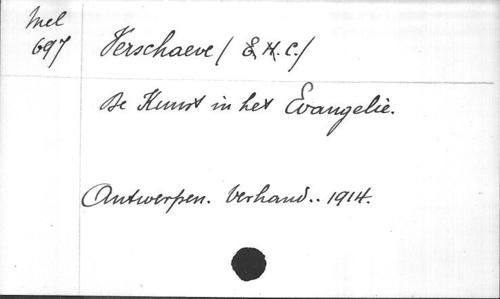 Mel
697
Verschaeve / E. H. C. /
De Kunst in het Evangelie.
Antwerpen. Verhand.. 1914.